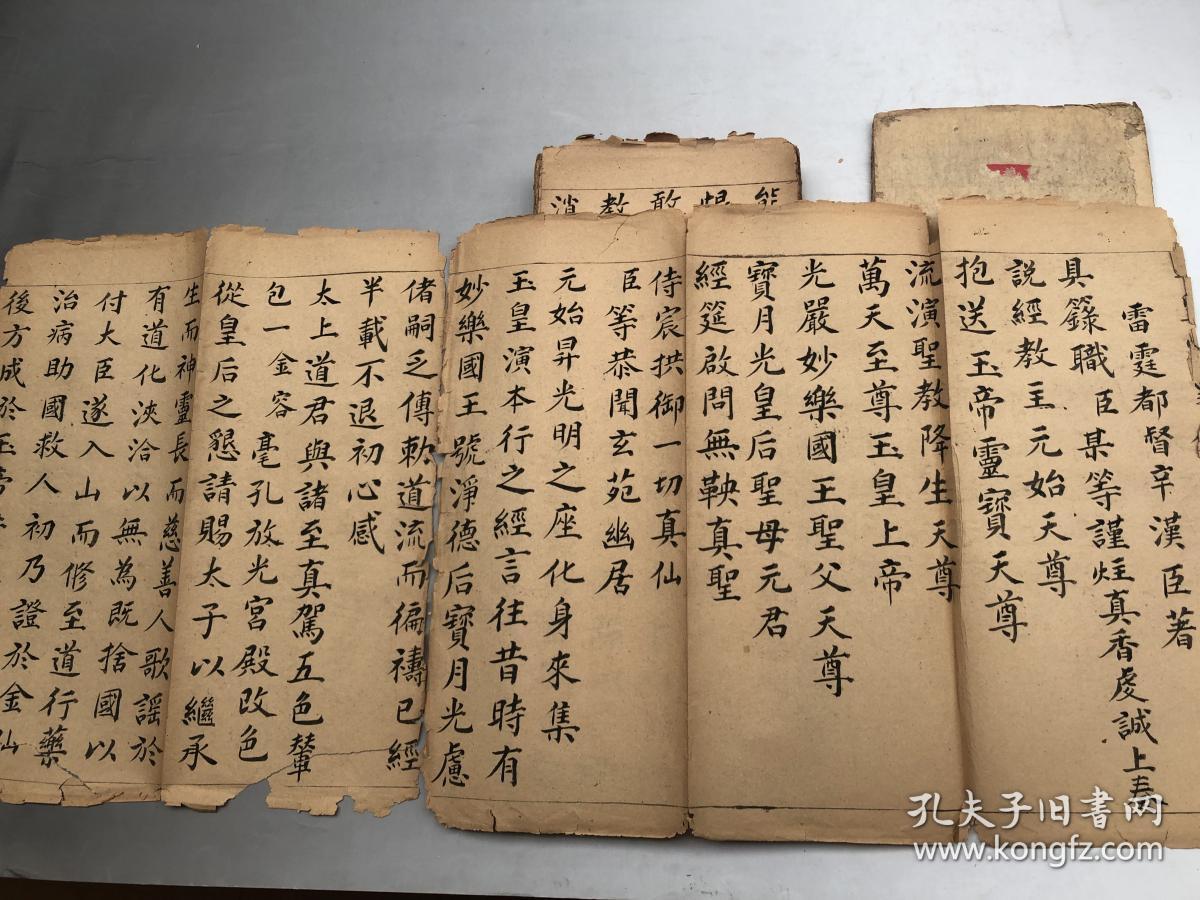 雷霆都督辛漢臣著
具籙職臣某等謹炷真香虔誠上奏
說經教主元始天尊
抱送玉帝靈寶天尊
流演聖教降生天尊
萬天至尊玉皇上帝
光嚴妙樂國王聖父天尊
寶月光皇后聖母元君
經筵啟問無鞅真聖
侍宸拱御一切真仙
臣等恭聞玄苑幽居
元始昇光明之座化身來集
玉皇演本行之經言往昔時有
妙樂國王號淨德后寶月光慮
偫嗣乏傳勑道流而徧禱已經
半載不退初心感
太上道君與諸至真駕五色輦
包一金容毫孔放光宮殿改色
從皇后之懇請賜太子以繼承
生而神靈長而慈善人歌謡於
有道化浹洽以無為既捨國以
付大臣遂入山而修至道行藥
治病助國救人初乃證於金仙
後方成於玉帝
能
敢
教
消
孔夫子旧书网
www.kongfz.com